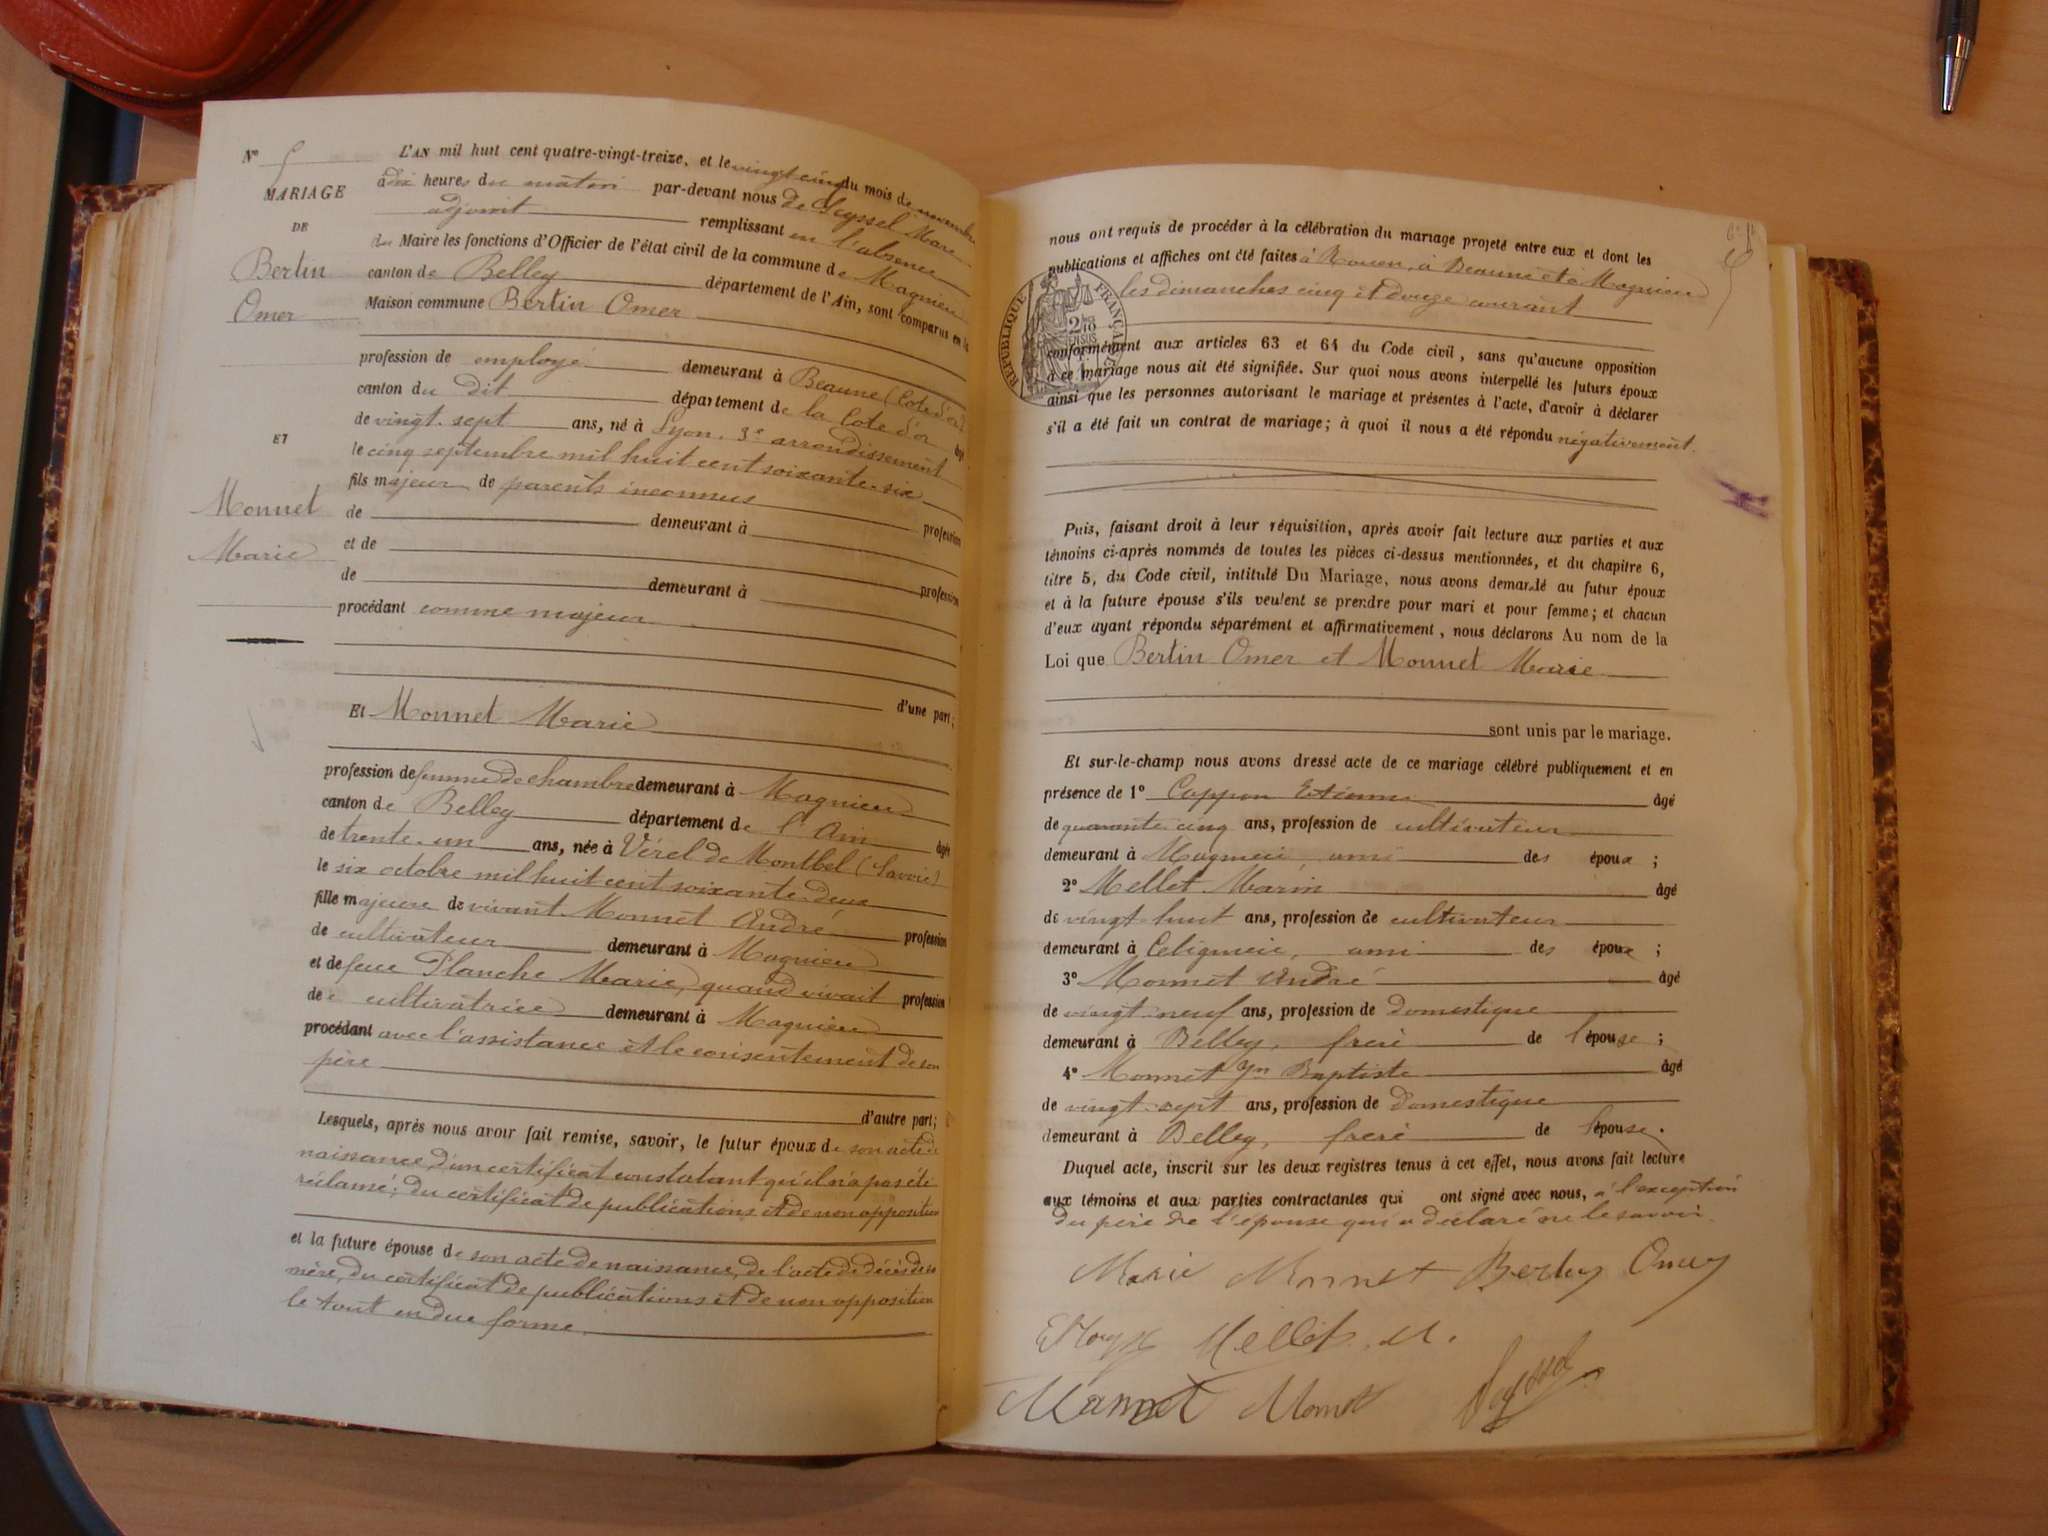 N° 5
MARIAGE
DE
Bertin
Omer
ET
Monnet
Marie
L'AN mil huit cent quatre-vingt-treize, et le vingt cinq du mois de novembre
à dix heures du matin par-devant nous de Seyssel Marc
adjoint remplissant en l'absence
du Maire les fonctions d'Officier de l'état civil de la commune de Magnieu
canton de Belley département de l'Ain, sont comparus en la
Maison commune Bertin Omer
profession de employé demeurant à Beaune (Côte d'or)
canton du dit département de la Côte d'or âgé
de vingt-sept ans, né à Lyon, 3e arrondissement
le cinq septembre mil huit cent soixante-six
fils majeur de parents inconnus
de demeurant à profession
et de
de demeurant à profession
procédant comme majeur
d'une part;
Et Monnet Marie
profession de femme de chambre demeurant à Magnieu
canton de Belley département de l'Ain âgée
de trente-un ans, née à Vérel de Montbel (Savoie)
le six octobre mil huit cent soixante-deux
fille majeure de vivant Monnet André profession
de cultivateur demeurant à Magnieu
et de feue Planche Marie, quand vivait profession
de cultivatrice demeurant à Magnieu
procédant avec l'assistance et le consentement de son
père
d'autre part;
Lesquels, après nous avoir fait remise, savoir, le futur époux de son acte de
naissance, d'un certificat constatant qu'il n'a pas été
réclamé; du certificat de publications et de non opposition
et la future épouse de son acte de naissance, de l'acte de décès de sa
mère, du certificat de publications et de non opposition
le tout en due forme
nous ont requis de procéder à la célébration du mariage projeté entre eux et dont les
publications et affiches ont été faites à Rouen, à Beaune et à Magnieu
les dimanches cinq et douze courant
RÉPUBLIQUE FRANÇAISE
conformément aux articles 63 et 64 du Code civil, sans qu'aucune opposition
à ce mariage nous ait été signifiée. Sur quoi nous avons interpellé les futurs époux
ainsi que les personnes autorisant le mariage et présentes à l'acte, d'avoir à déclarer
s'il a été fait un contrat de mariage; à quoi il nous a été répondu négativement.
Puis, faisant droit à leur réquisition, après avoir fait lecture aux parties et aux
témoins ci-après nommés de toutes les pièces ci-dessus mentionnées, et du chapitre 6,
titre 5, du Code civil, intitulé Du Mariage, nous avons demandé au futur époux
et à la future épouse s'ils veulent se prendre pour mari et pour femme; et chacun
d'eux ayant répondu séparément et affirmativement, nous déclarons Au nom de la
Loi que Bertin Omer et Monnet Marie
sont unis par le mariage.
Et sur-le-champ nous avons dressé acte de ce mariage célébré publiquement et en
présence de 1° Etienne âgé
de quarante cinq ans, profession de cultivateur
demeurant à Magnieu, ami des époux;
2° Mellet Marin âgé
de vingt-huit ans, profession de cultivateur
demeurant à ami des époux;
3° Monnet André âgé
de vingt-neuf ans, profession de domestique
demeurant à Belley, frère de l'épouse;
4° Monnet Jn Baptiste âgé
de vingt-sept ans, profession de domestique
demeurant à Belley, frère de l'épouse.
Duquel acte, inscrit sur les deux registres tenus à cet effet, nous avons fait lecture
aux témoins et aux parties contractantes qui ont signé avec nous, à l'exception
du père de l'épouse qui a déclaré ne le savoir.
Marie Monnet Bertin Omer
Mellet M.
Monnet Monnet Seyssel